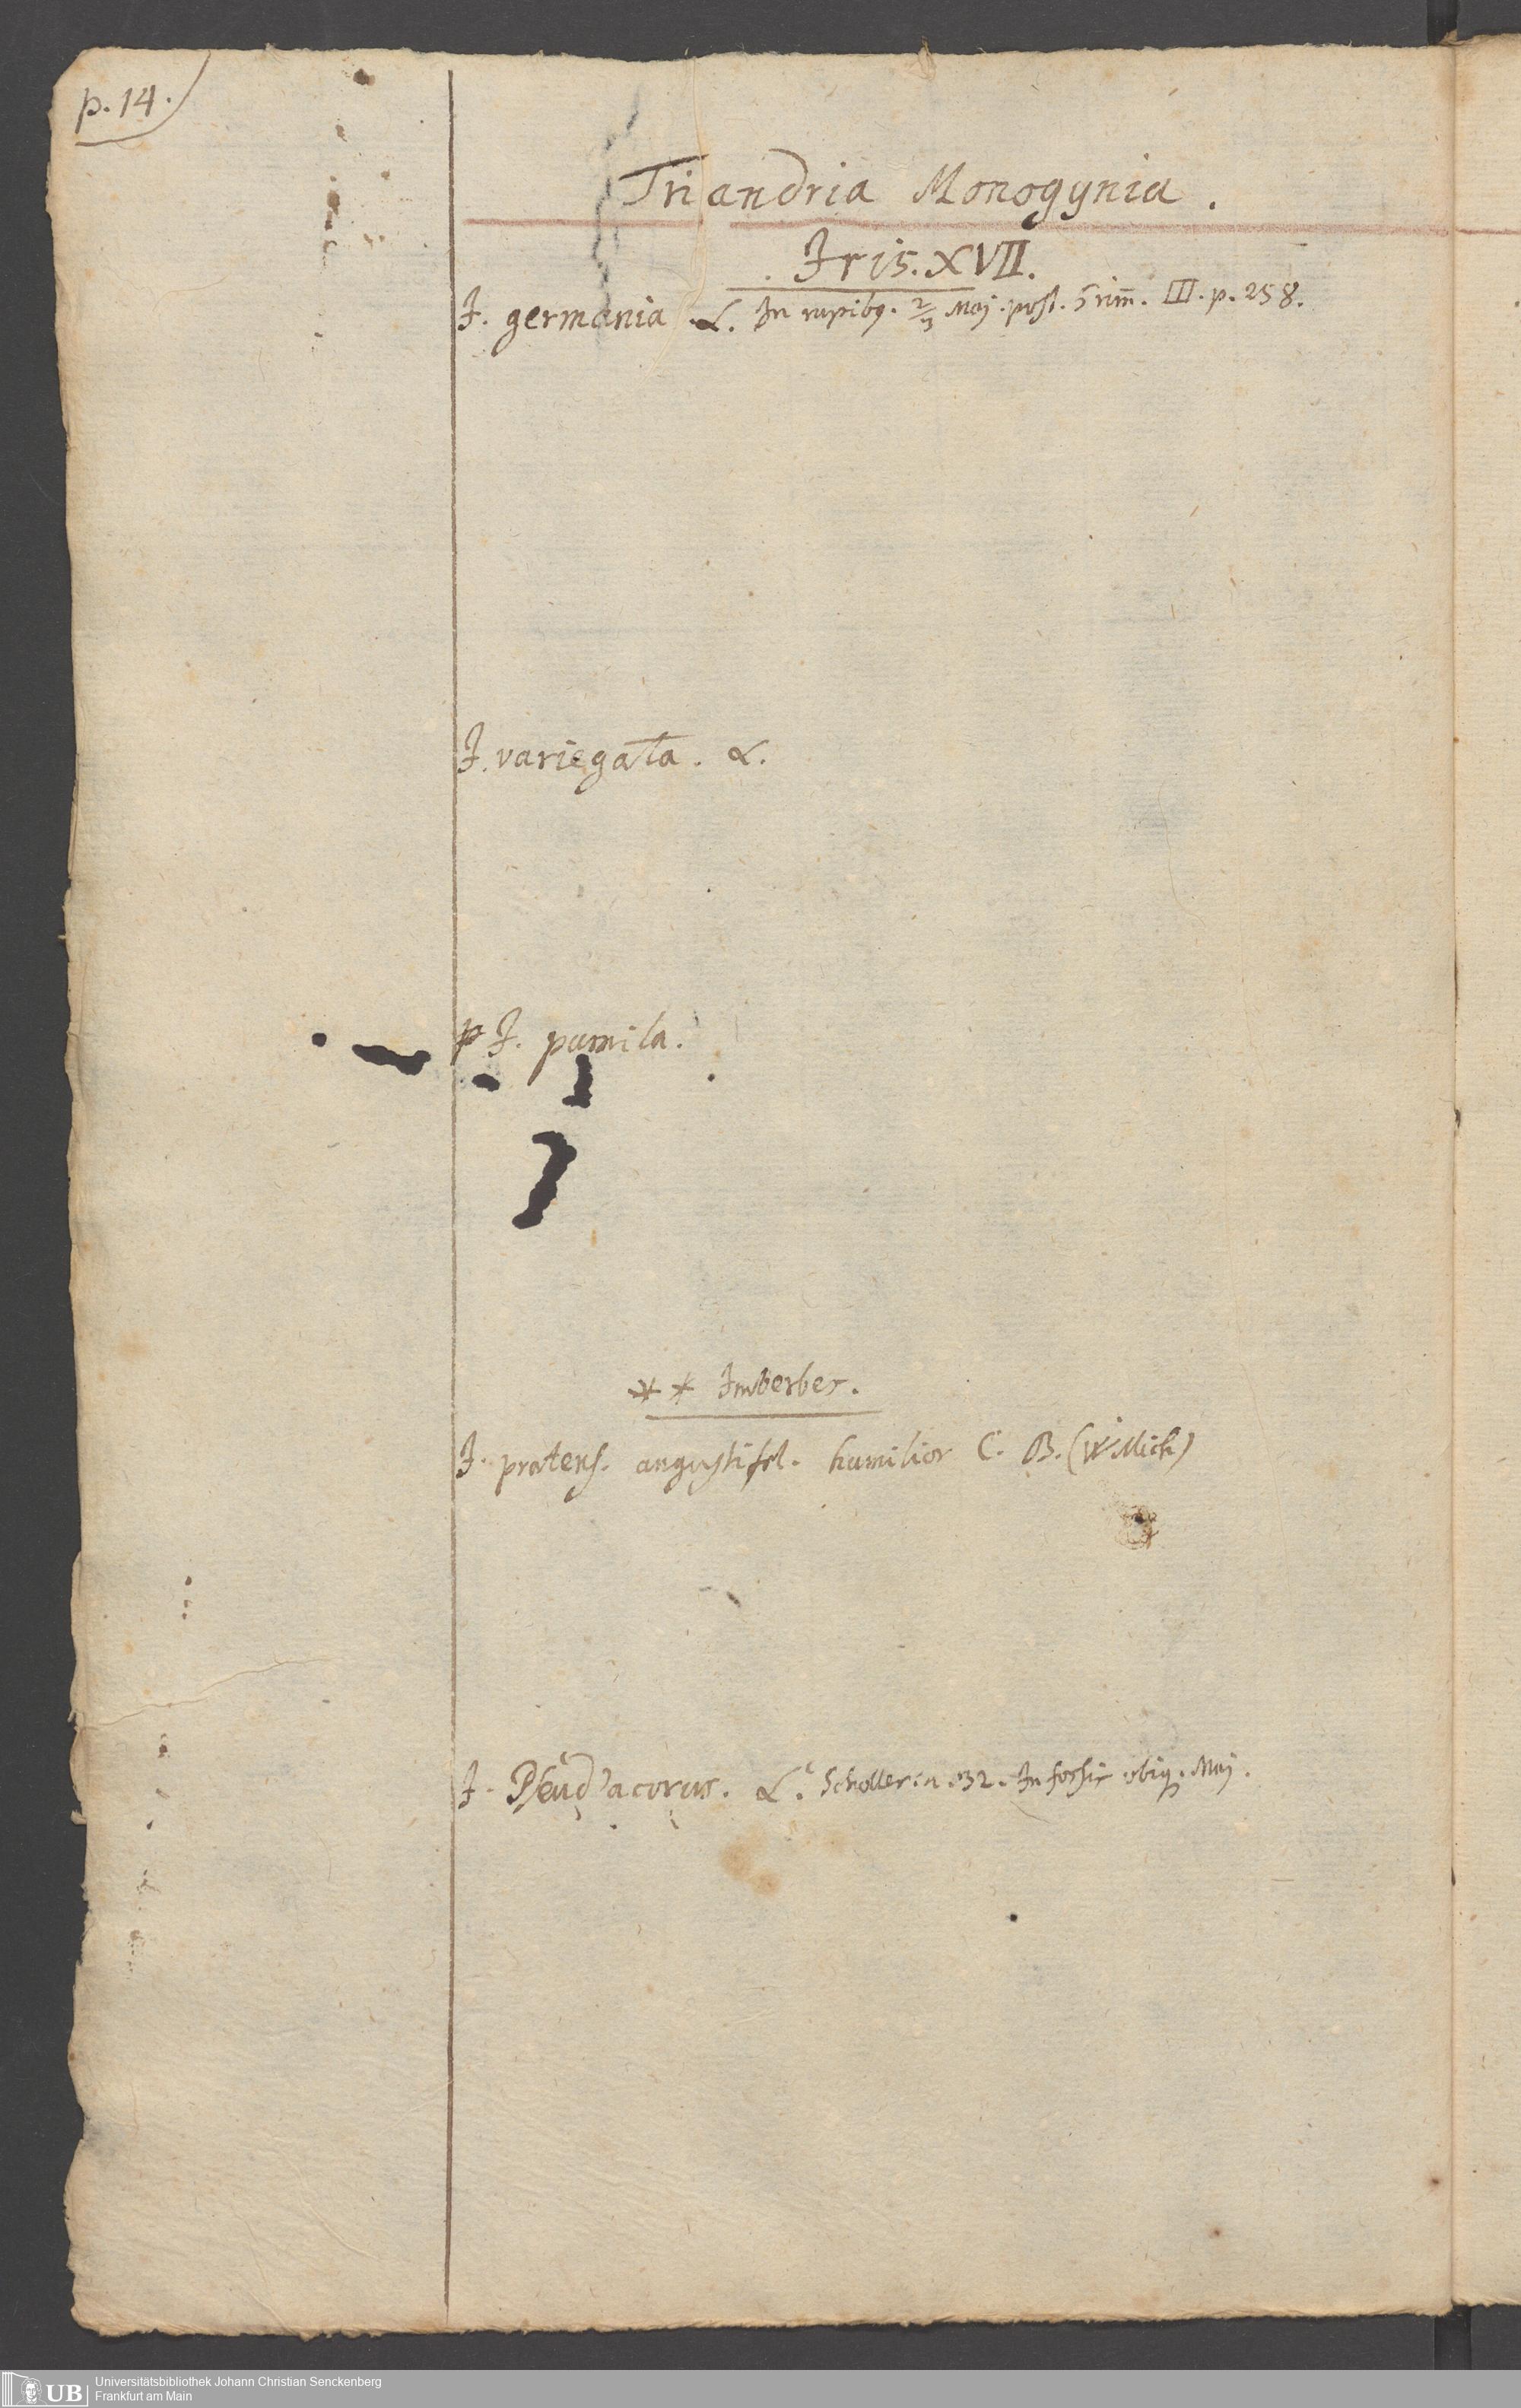 p. 14.
Triandria Monogynia.
Iris. XVII.
I. germania α. In rupibq. 2/3 Maj. post. III. p. 258.
I. variegata. α.
p I. pumila.
** Imberbes.
I. pratens. angustifol. humilior C. B. (Willich)
I. Pseud'acorus. α. Scholler. n. 32. In fossis ubiq. Maj.
UB
Universitätsbibliothek Johann Christian Senckenberg
Frankfurt am Main